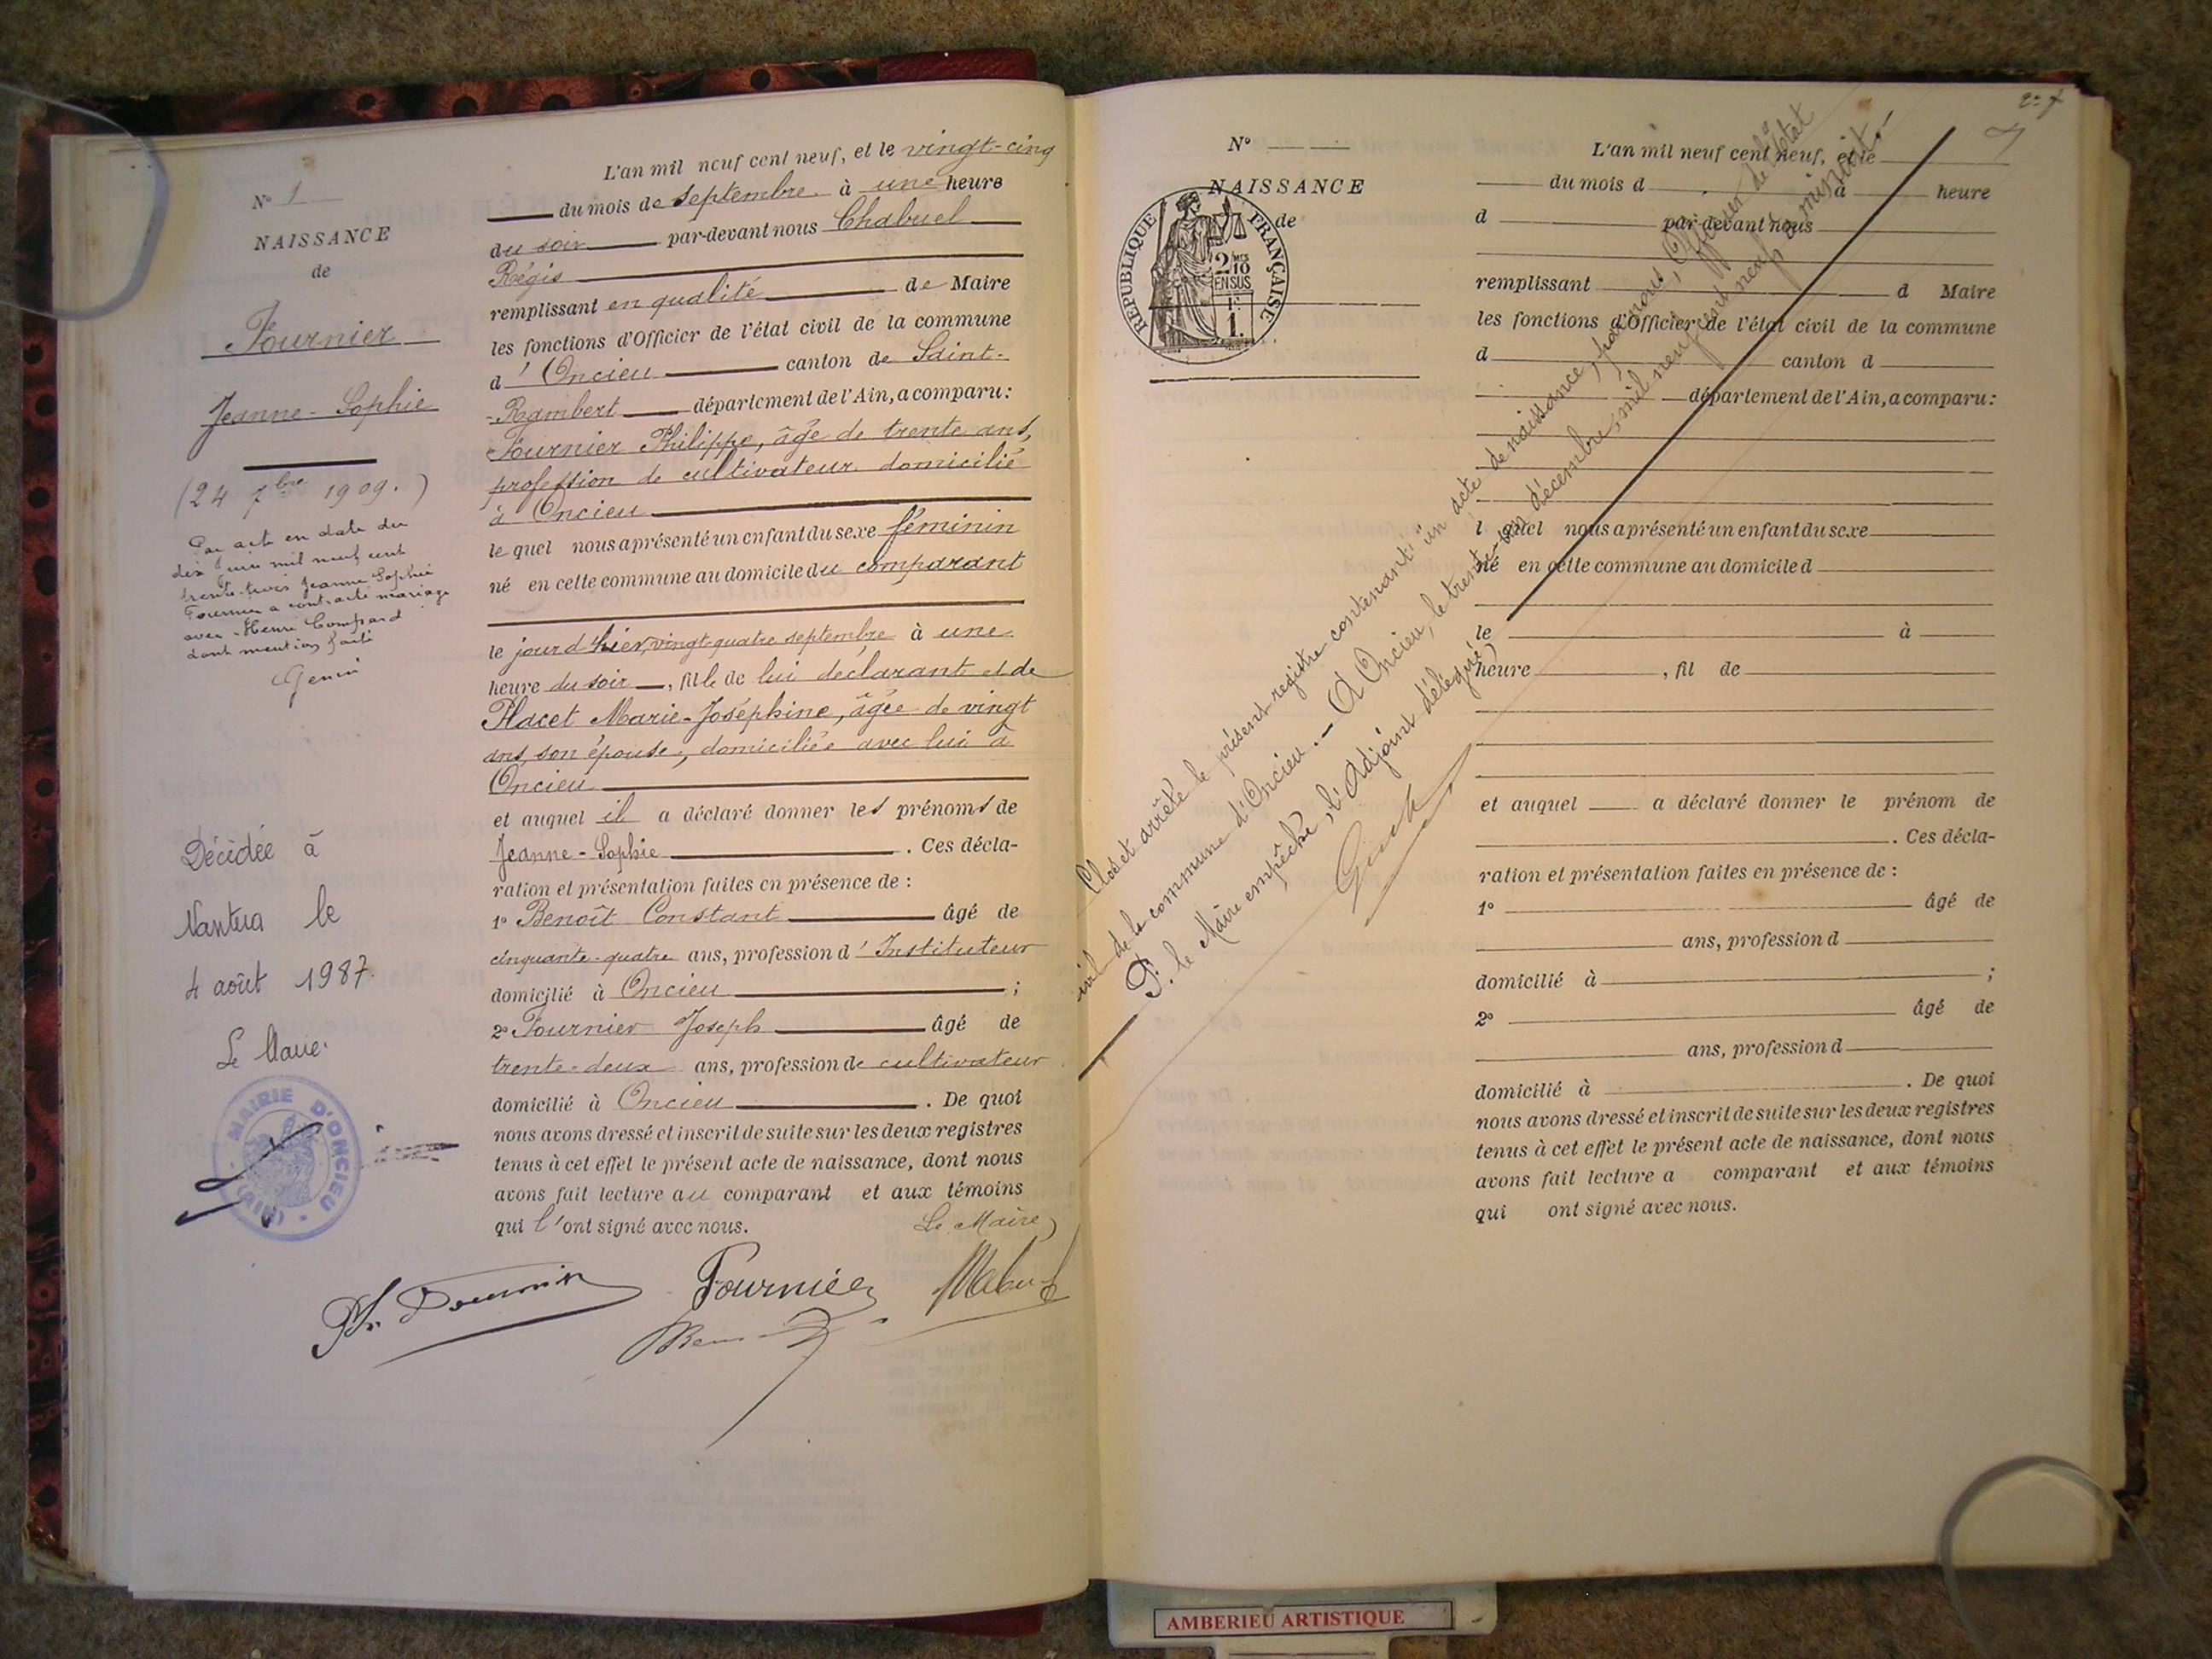 N° 1
NAISSANCE
de
Fournier
Jeanne-Sophie
(24 7bre 1909.)
Par acte en date du
dix juin mil neuf cent
trente-trois Jeanne Sophie
Fournier a contracté mariage
avec Henri Compard
dont mention faite
Genin
Décédée à
Nantua le
4 août 1987.
Le Maire.
MAIRIE D'ONCIEU (AIN)
L'an mil neuf cent neuf, et le vingt-cinq
du mois de septembre à une heure
du soir par-devant nous Chabuel
Régis
remplissant en qualité de Maire
les fonctions d'Officier de l'état civil de la commune
d'Oncieu canton de Saint-
-Rambert département de l'Ain, a comparu:
Fournier Philippe, âgé de trente ans,
profession de cultivateur domicilié
à Oncieu
le quel nous a présenté un enfant du sexe féminin
né en cette commune au domicile du comparant
le jour d'hier, vingt-quatre septembre à une
heure du soir, fille de lui déclarant et de
Placet Marie-Joséphine, âgée de vingt
ans, son épouse, domiciliée avec lui à
Oncieu
et auquel il a déclaré donner les prénoms de
Jeanne-Sophie. Ces décla-
ration et présentation faites en présence de :
1° Benoît Constant âgé de
cinquante-quatre ans, profession d'Instituteur
domicilié à Oncieu ;
2° Fournier Joseph âgé de
trente-deux ans, profession de cultivateur
domicilié à Oncieu. De quoi
nous avons dressé et inscrit de suite sur les deux registres
tenus à cet effet le présent acte de naissance, dont nous
avons fait lecture au comparant et aux témoins
qui l'ont signé avec nous.
Le Maire,
Ph. Fournier Fournier
N°
NAISSANCE
de
REPUBLIQUE FRANÇAISE
2/10
EN SUS
1.
7
L'an mil neuf cent neuf, et le
du mois d à heure
d par-devant nous
remplissant d Maire
les fonctions d'Officier de l'état civil de la commune
d canton d
département de l'Ain, a comparu:
l quel nous a présenté un enfant du sexe
né en cette commune au domicile d
le à
heure , fil de
et auquel a déclaré donner le prénom de
. Ces décla-
ration et présentation faites en présence de :
1° âgé de
ans, profession d
domicilié à ;
2° âgé de
ans, profession d
domicilié à . De quoi
nous avons dressé et inscrit de suite sur les deux registres
tenus à cet effet le présent acte de naissance, dont nous
avons fait lecture a comparant et aux témoins
qui ont signé avec nous.
Clos et arrêté le présent registre contenant un acte de naissance, par nous, Officier de l'état
civil de la commune d'Oncieu.- A Oncieu, le trente-un décembre mil neuf cent neuf, à minuit.
P. le Maire empêché, l'Adjoint délégué,
AMBERIEU ARTISTIQUE